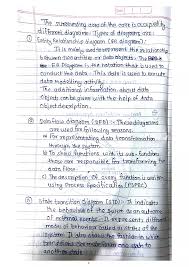 The surrounding area of the core is occupied by
different diagrams. Types of diagrams are:
① Entity Relationship diagram (ER diagram):
It is mainly used to represent the relationship
between the entities or data objects. The ERD is
the notation that is used to
conduct the data. This data is used to execute
data modelling activity.
The additional information about data
objects can be given with the help of data
object description.
② Data flow diagram (DFD) - These diagrams
are used for following reasons.
a) For representing data transformation
through the system.
b) To show functions with its sub-functions
those are responsible for transforming the
data flow.
c) The description of every function is written
using Process Specification (PSPEC)
③ State transition diagram (STD) - It indicates
the behaviour of the system as an outcome
of external events. It represents different
mode of behaviour called as states of the
system. It also shows the fashion in which
transitions are made from one state to
another state